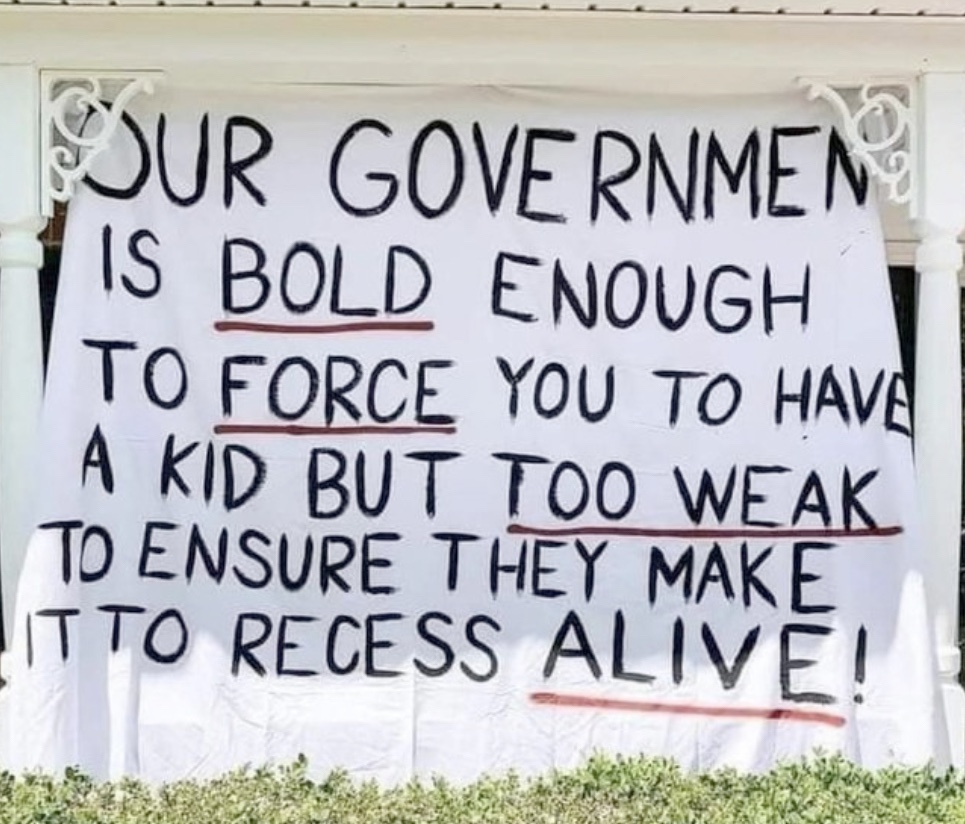 OUR GOVERNMEN
IS BOLD ENOUGH
TO FORCE YOU TO HAVE
A KID BUT TOO WEAK
TO ENSURE THEY MAKE
IT TO RECESS ALIVE!